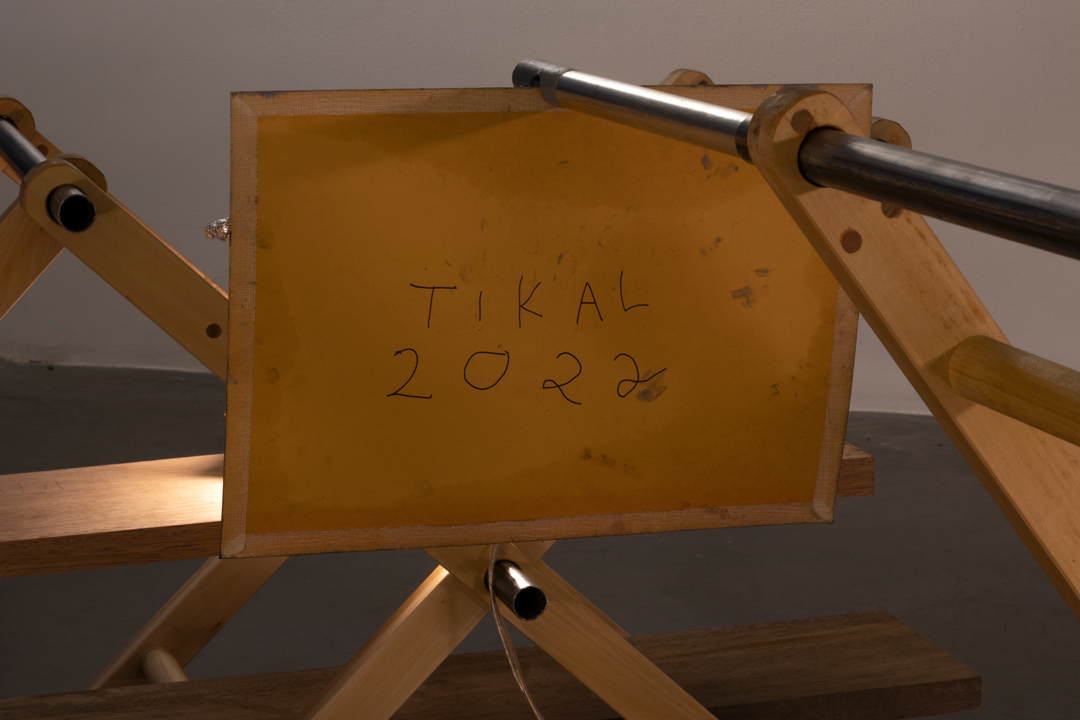 TIKAL
2022